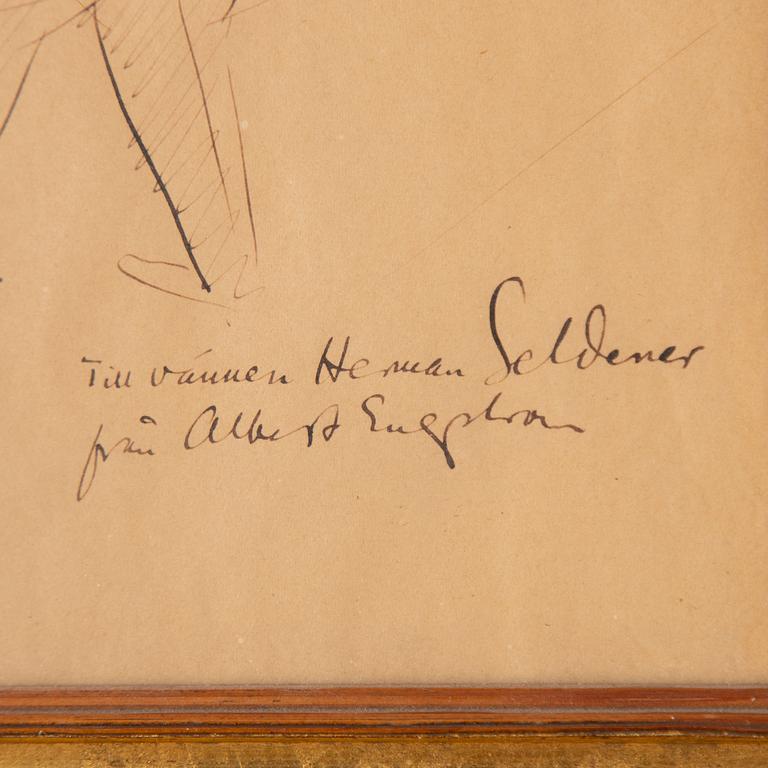 Till vännen Herman Seldener
från Albert Engström